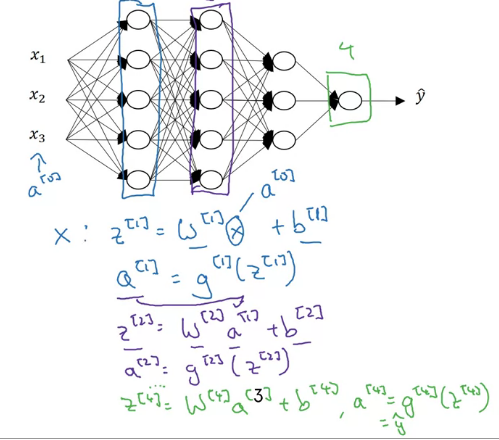 4
x₁
x₂ ŷ
x₃
a^[0]
a^[0]
X : z^[1] = W^[1] x + b^[1]
a^[1] = g^[1](z^[1])
z^[2] = W^[2] a^[1] + b^[2]
a^[2] = g^[2](z^[2])
...
z^[4] = W^[4] a^[3] + b^[4] , a^[4] = g^[4](z^[4])
= ŷ